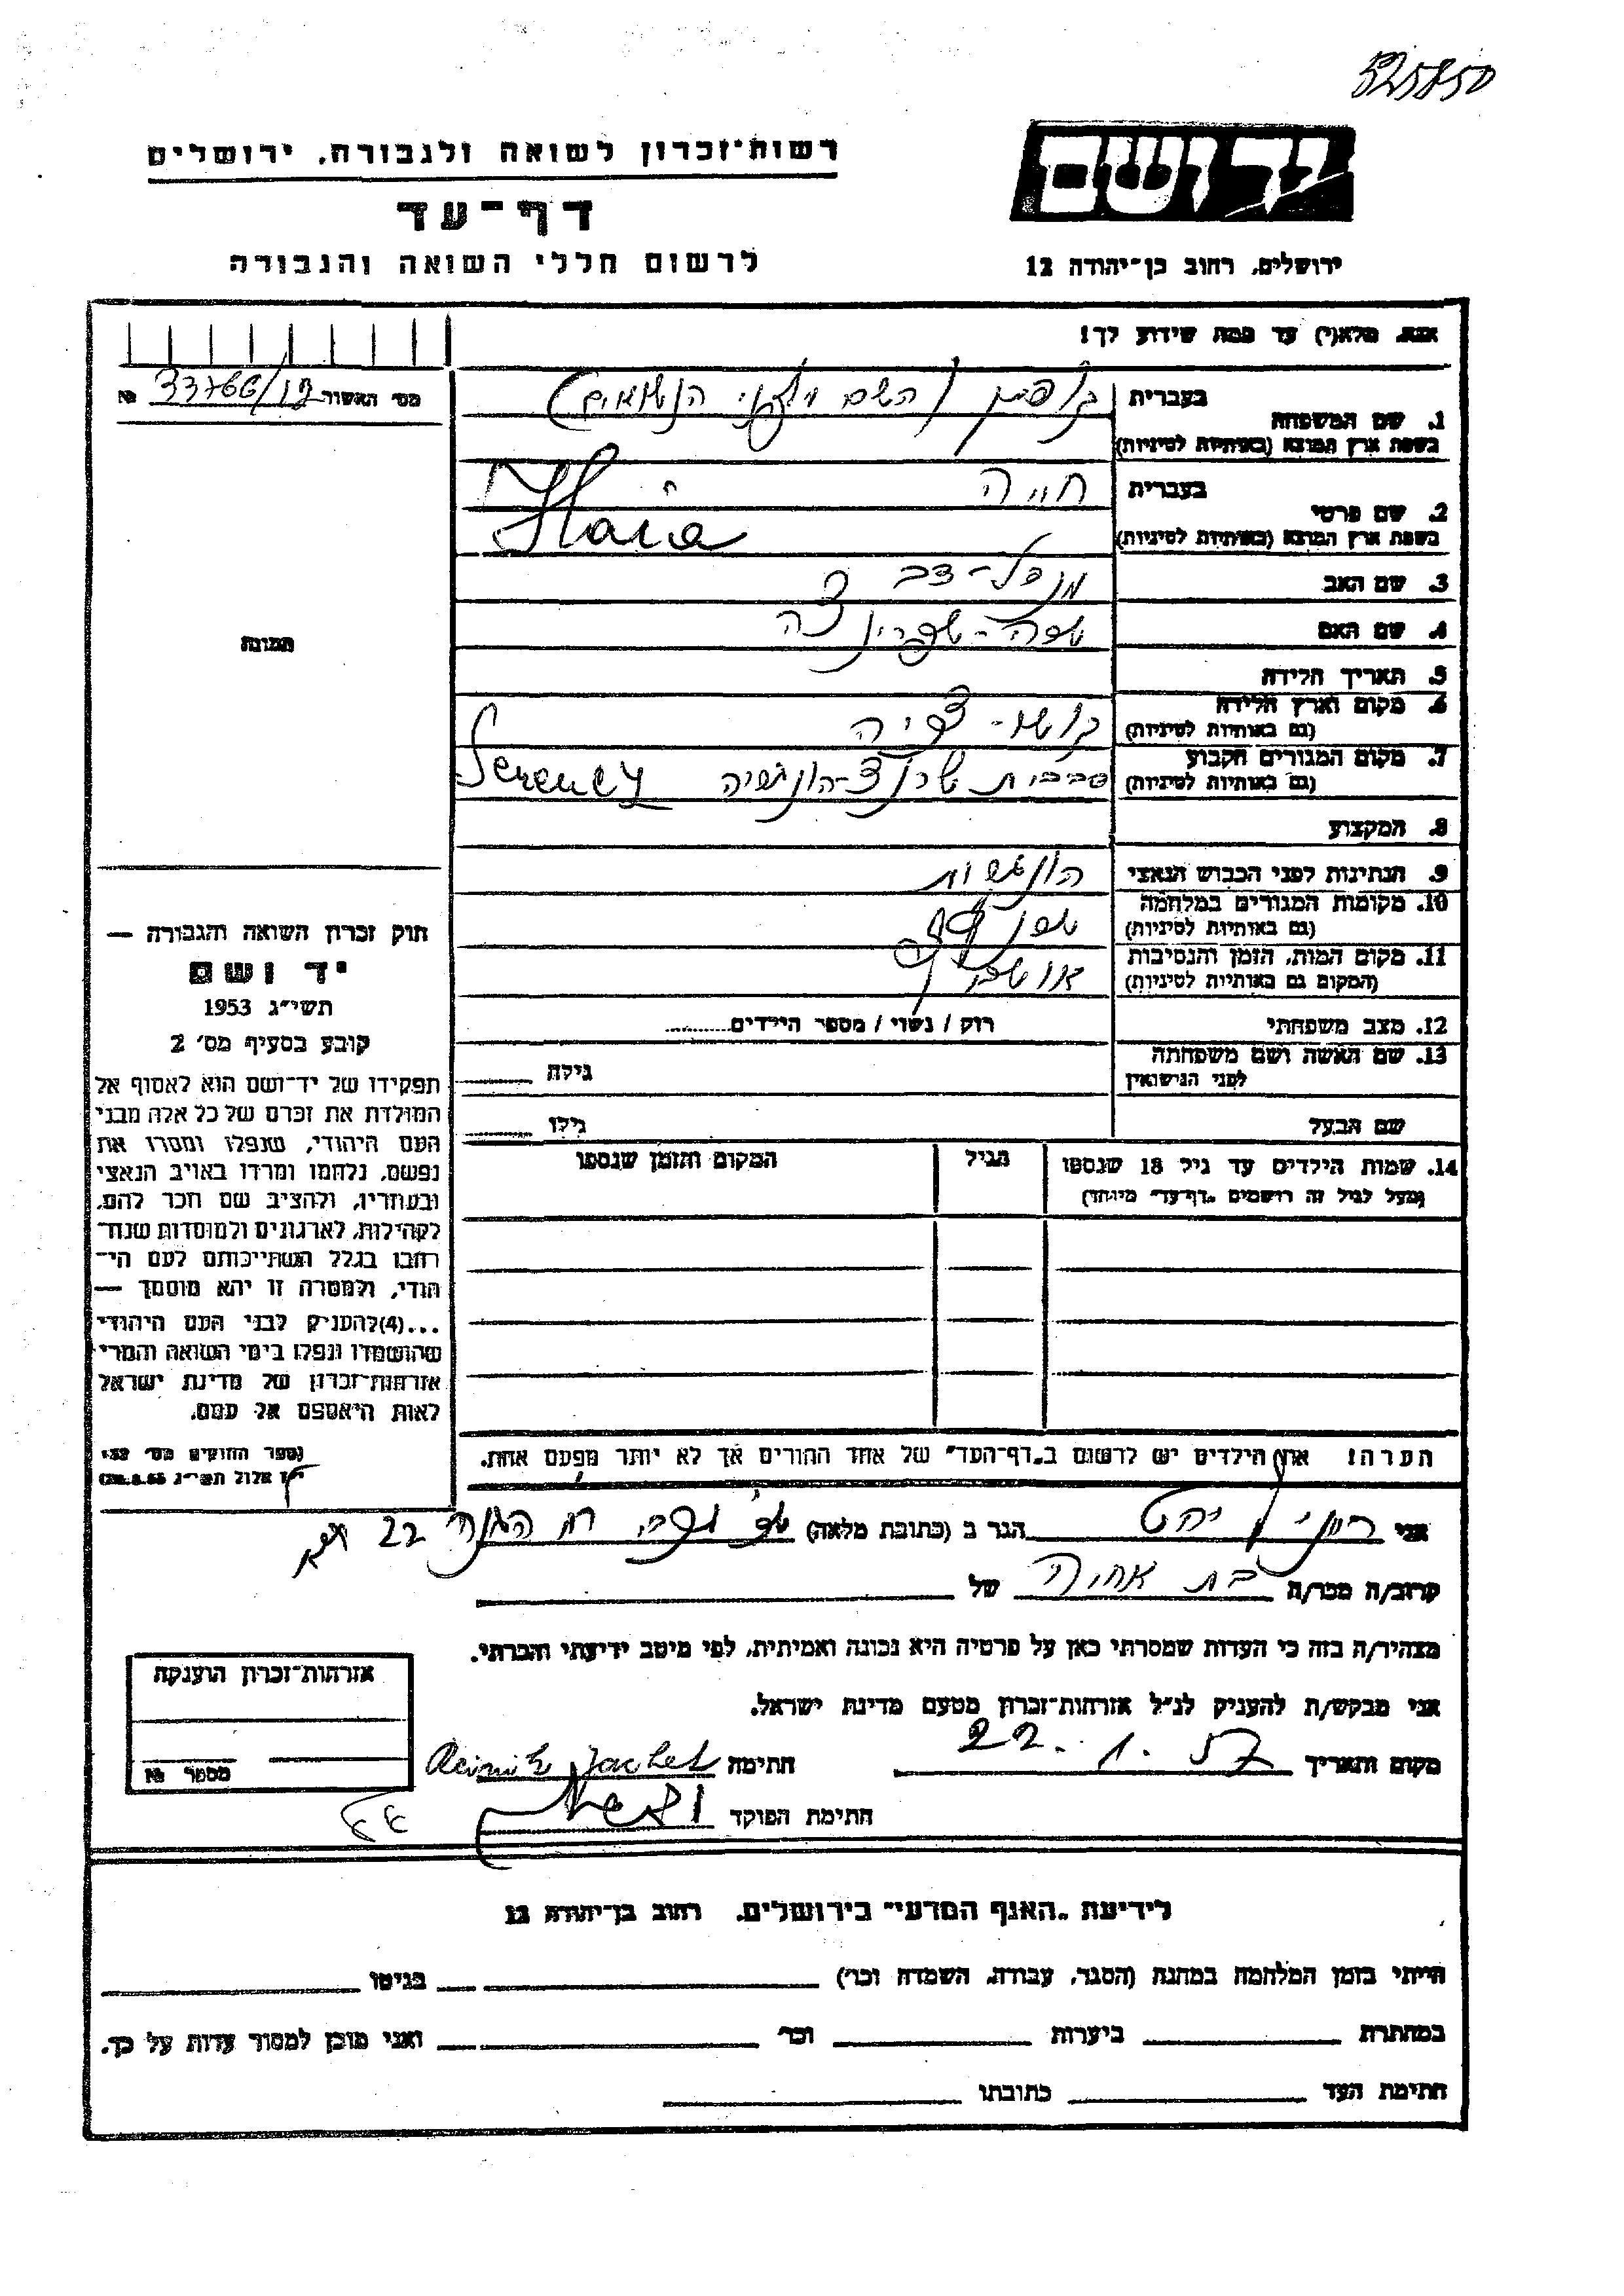 525850
רשות־זכרון לשואה ולגבורה. ירושלים
יד ושם
דף־עד
לרשום חללי השואה והגבורה
ירושלים, רחוב בן־יהודה 12
אנא, מלא(י) עד כמה שידוע לך!
מס' האשור 33766/12 №
1. שם המשפחה
בעברית (השם מלפני הנשואים)
בשפת ארץ המוצא (באותיות לטיניות)
2. שם פרטי
בעברית חייה
בשפת ארץ המוצא (באותיות לטיניות) Haia
3. שם האב מנדל-צבי
4. שם האם
5. תאריך הלידה
6. מקום וארץ הלידה
(גם באותיות לטיניות)
7. מקום המגורים הקבוע סביבות
(גם באותיות לטיניות) Serency
8. המקצוע
9. הנתינות לפני הכבוש הנאצי
10. מקומות המגורים במלחמה
(גם באותיות לטיניות)
11. מקום המות, הזמן והנסיבות
(המקום גם באותיות לטיניות)
12. מצב משפחתי רוק / נשוי / מספר הילדים
13. שם האשה ושם משפחתה
לפני הנישואין גילה
שם הבעל גילו
14. שמות הילדים עד גיל 18 שנספו הגיל המקום והזמן שנספו
(מעל לגיל זה רושמים „דף־עד" מיוחד)
תמונה
חוק זכרון השואה והגבורה —
יד ושם
תשי"ג 1953
קובע בסעיף מס' 2
תפקידו של יד־ושם הוא לאסוף אל
המולדת את זכרם של כל אלה מבני
העם היהודי, שנפלו ומסרו את
נפשם, נלחמו ומרדו באויב הנאצי
ובעוזריו, ולהציב שם וזכר להם,
לקהילות, לארגונים ולמוסדות שנח־
רבו בגלל השתייכותם לעם הי־
הודי, ולמטרה זו יהא מוסמך —
...(4)להעניק לבני העם היהודי
שהושמדו ונפלו בימי השואה והמרי
אזרחות־זכרון של מדינת ישראל
לאות היאספם אל עמם.
(ספר החוקים מס' 132
י"ז אלול תשי"ג 28.8.53)
הערה! את הילדים יש לרשום ב„דף־העד" של אחד ההורים אך לא יותר מפעם אחת.
אני הגר ב (כתובת מלאה) 22
קרוב/ה מכר/ה בת אחיה של
מצהיר/ה בזה כי העדות שמסרתי כאן על פרטיה היא נכונה ואמיתית, לפי מיטב ידיעתי והכרתי.
אני מבקש/ת להעניק לנ"ל אזרחות־זכרון מטעם מדינת ישראל.
מקום ותאריך 22.1.57 חתימה
חתימת הפוקד
אזרחות־זכרון הוענקה
מספר №
לידיעת „האגף המדעי" בירושלים. רחוב בן־יהודה 12
הייתי בזמן המלחמה במחנה (הסגר, עבודה, השמדה וכו') בגיטו
במחתרת ביערות וכו' ואני מוכן למסור עדות על כך.
חתימת העד כתובתו